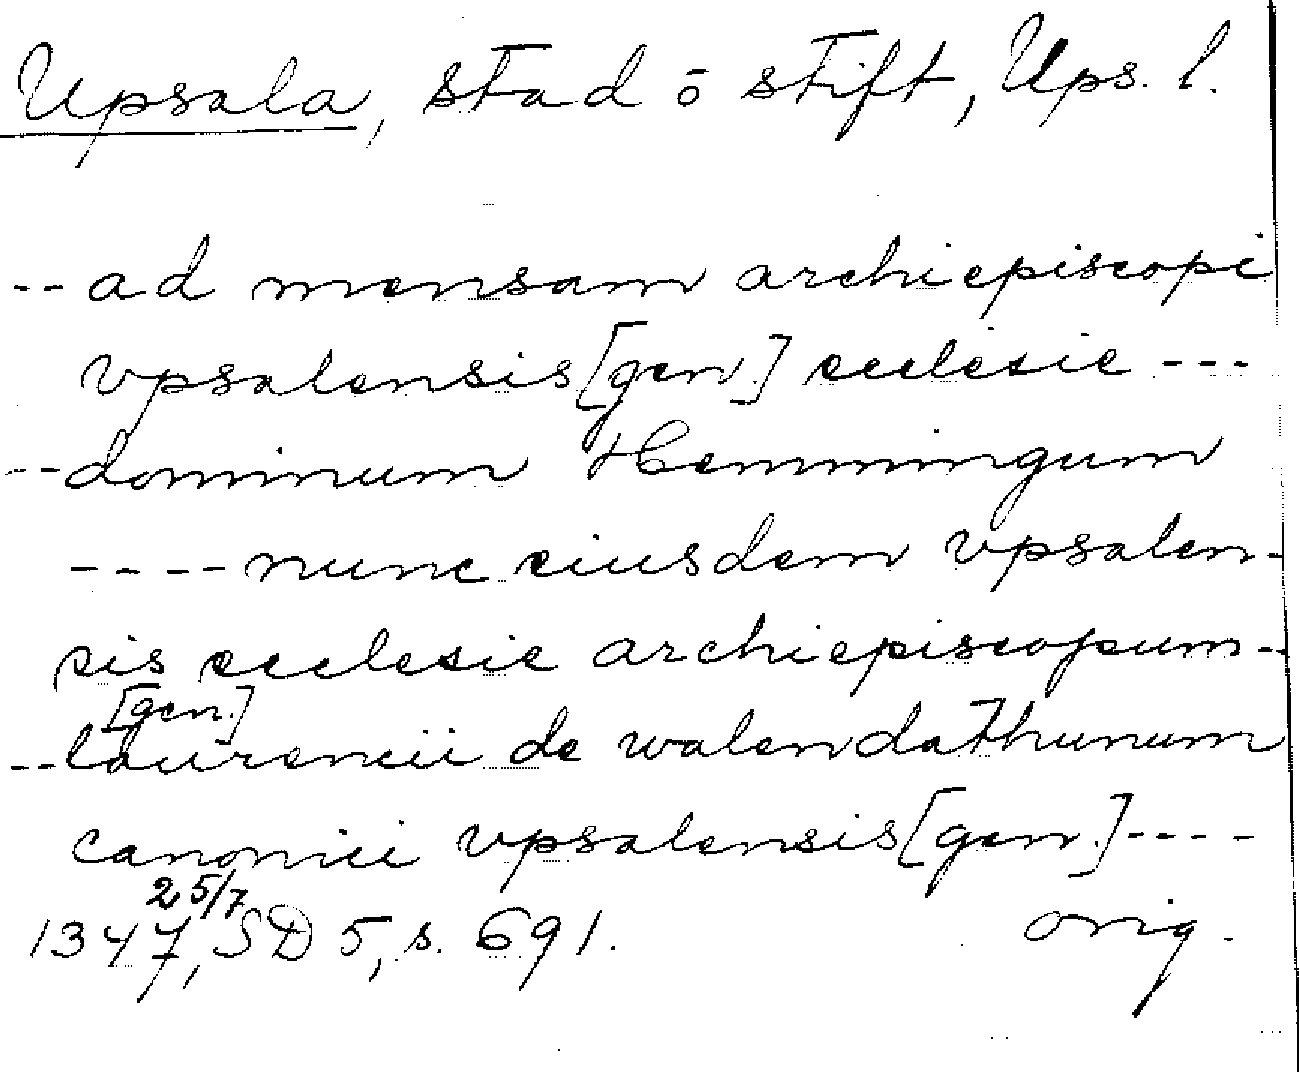 Upsala, stad ō stift, Ups. l.
-- ad mensam archiepiscopi
vpsalensis [gen.] ecclesie ---
-- dominum Hemmingum
---- nunc eiusdem vpsalen-
sis ecclesie archiepiscopum --
[gen.]
-- laurencii de walendathunum
canonici vpsalensis [gen.] ----
25/7
1347, SD 5, s. 691. orig.